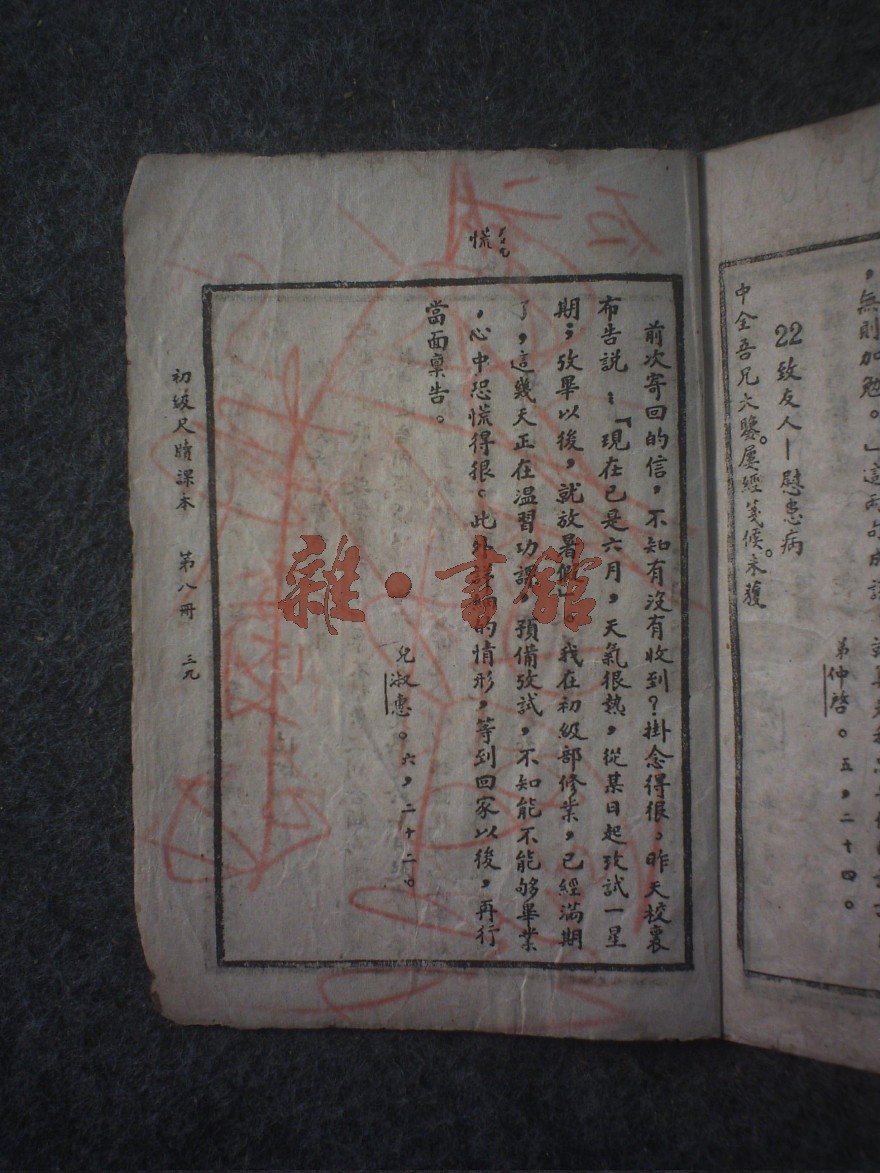 ，無則加勉。」這兩句成語
弟仲啓。五，二十四。
22 致友人—慰患病
中全吾兄大鑒。屢經箋候。未獲
ㄏㄨㄤ
慌
前次寄回的信，不知有沒有收到？掛念得很，昨天校裏
布告說：「現在已是六月，天氣很熱，從某日起攷試一星
期；攷畢以後，就放暑假」。我在初級部修業，已經滿期
了，這幾天正在温習功課，預備攷試，不知能不能够畢業
，心中恐慌得很。此外詳細的情形，等到回家以後，再行
當面稟告。
兒淑惠。六，二十二。
初級尺牘課本 第八冊 三九
雜·書館